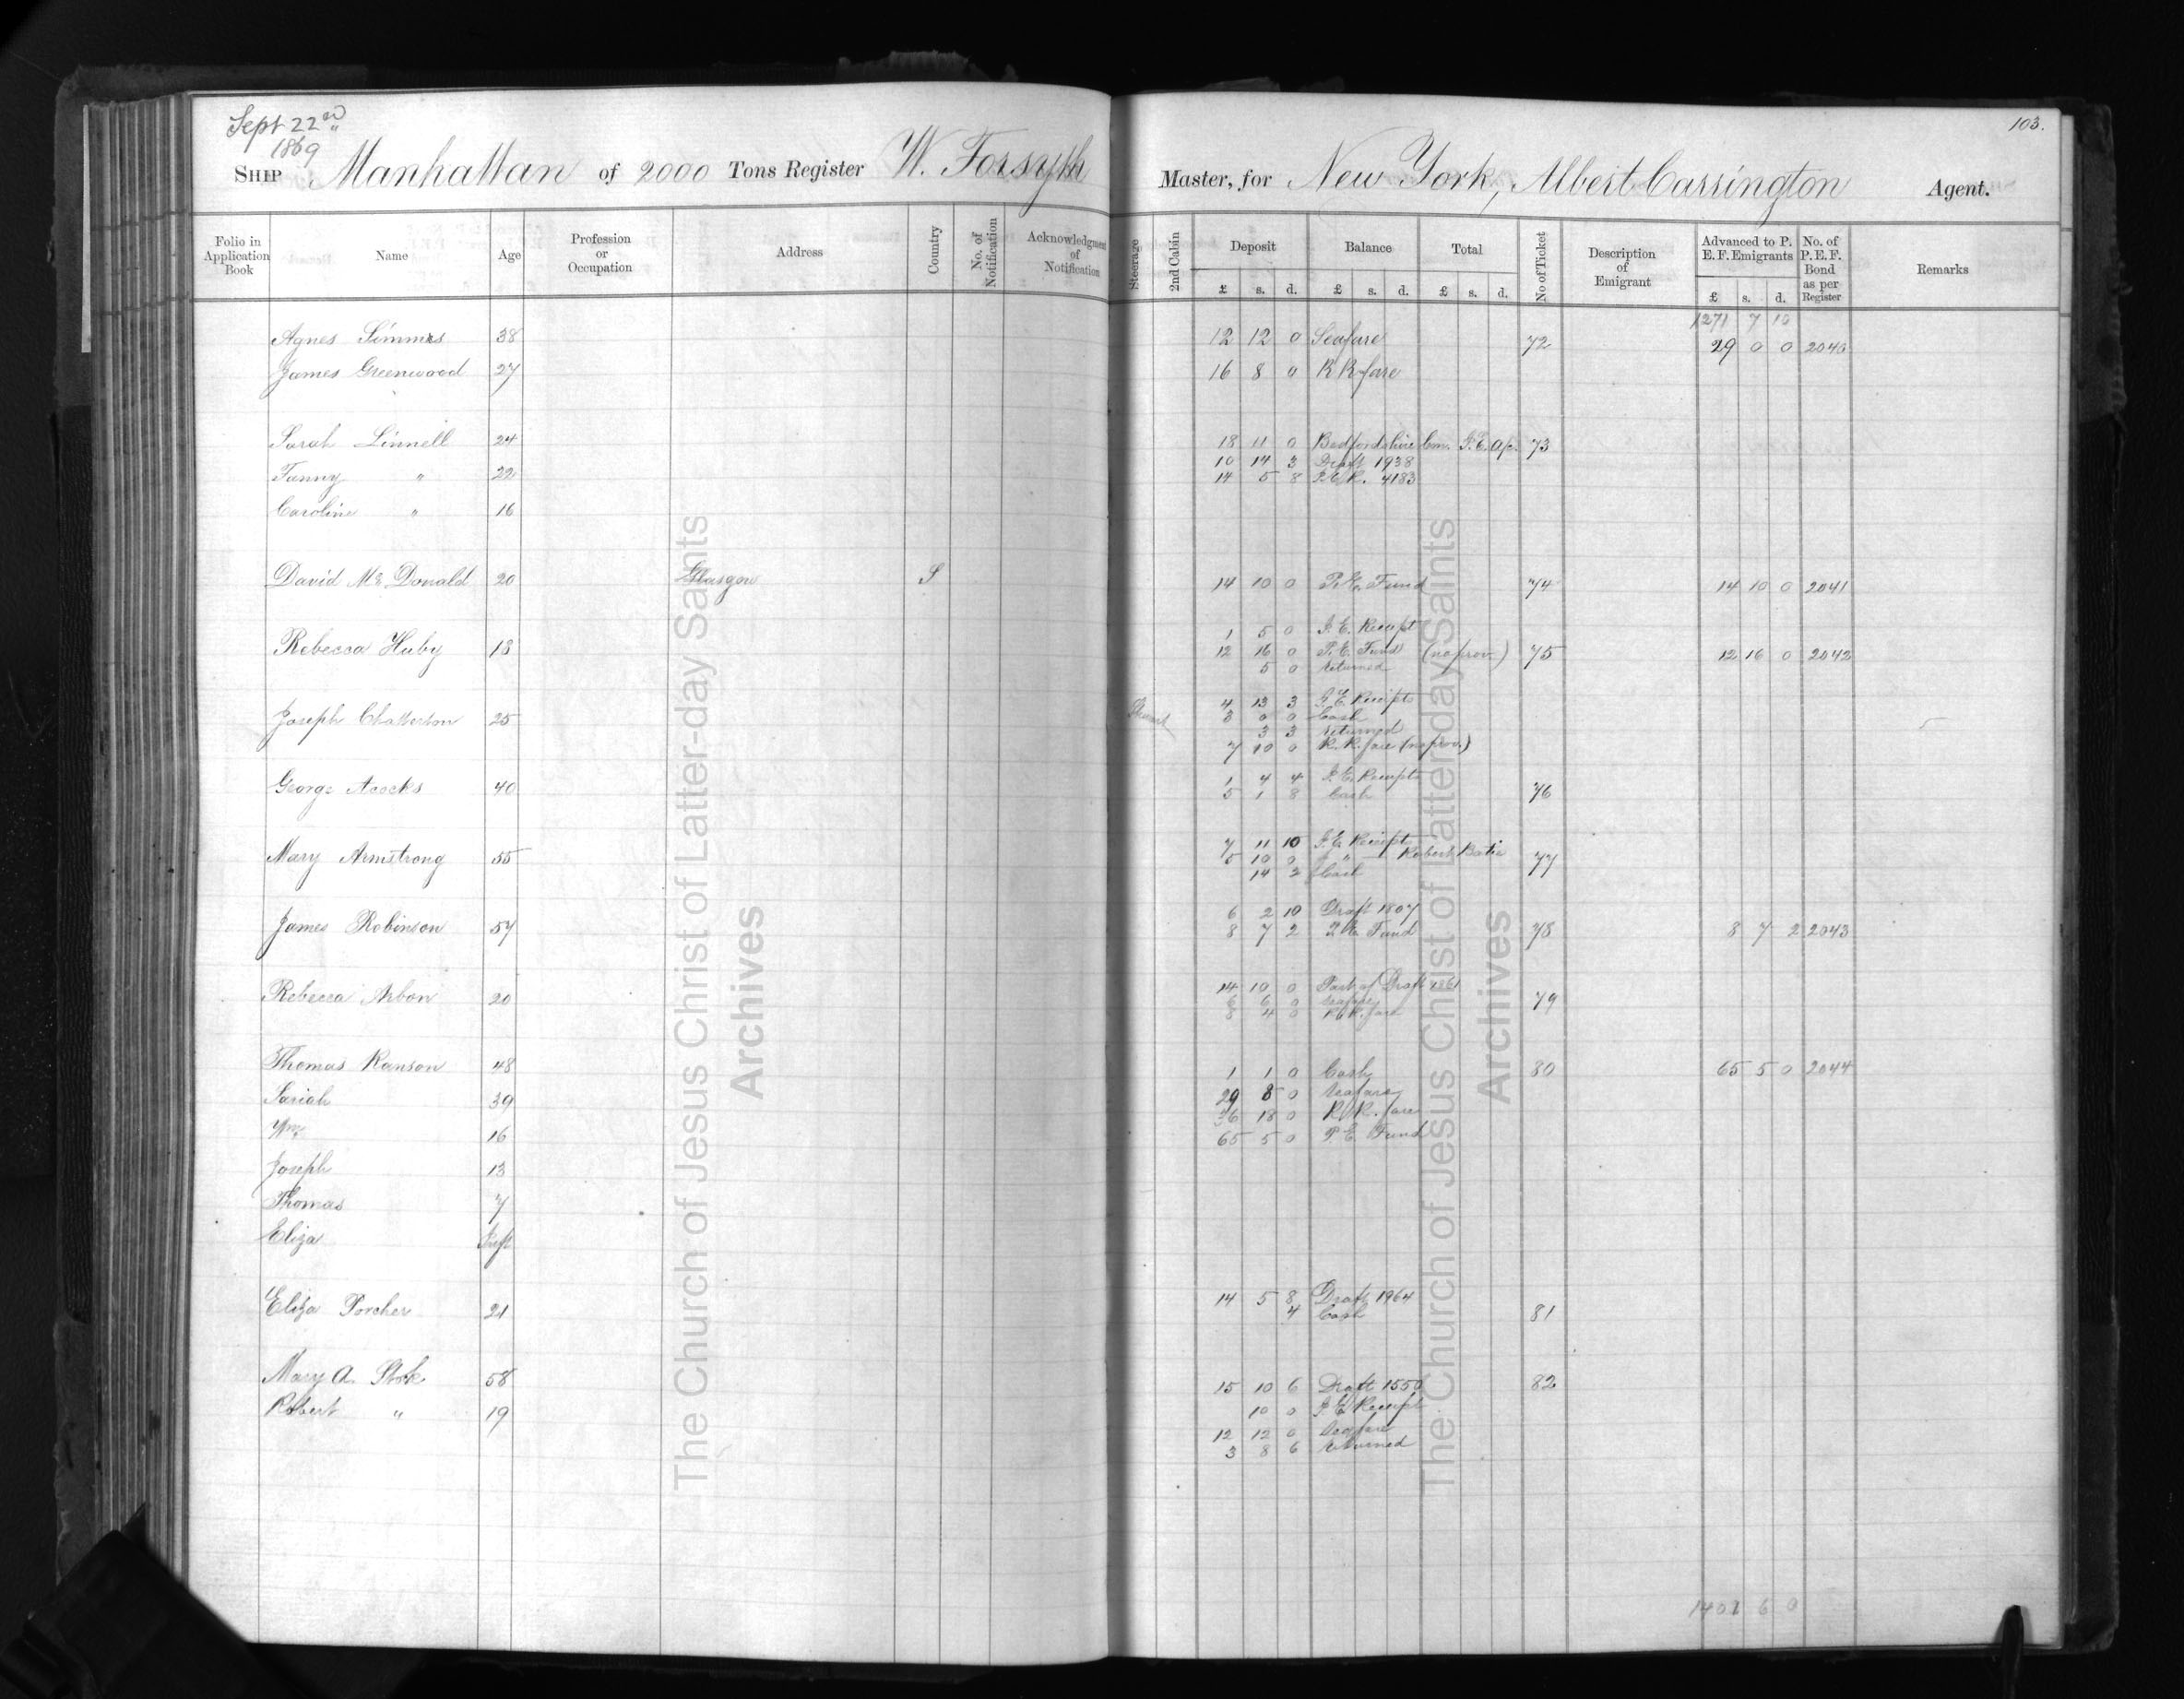 Sept 22nd
1869
103.
SHIP Manhattan of 2000 Tons Register W. Forsyth Master, for New York, Albert Carrington Agent.
Folio in Application Book Name Age Profession or Occupation Address Country No. of Notification Acknowledgment of Notification Steerage 2nd Cabin Deposit Balance Total No of Ticket Description of Emigrant Advanced to P. E. F. Emigrants No. of P. E. F. Bond as per Register Remarks
£ s. d. £ s. d. £ s. d. £ s. d.
1271 7 10
Agnes Simmes 38 12 12 0 Seafare 72 29 0 0 2040
James Greenwood 27 16 8 0 R R fare
Sarah Linnell 24 18 11 0 Bedfordshire Con. I. E. Ap. 73
10 14 3 Draft 1938
Fanny " 22 14 5 8 4183
Caroline " 16
David Mc Donald 20 Glasgow S 14 10 0 P. E. Fund 74 14 10 0 2041
1 5 0 I. E. Receipt
Rebecca Huby 18 12 16 0 P. E. Fund (no prov.) 75 12 16 0 2042
5 0 returned
4 13 3 I. E. Receipts
Joseph Chatterton 25 3 0 0 Cash
3 3 returned
7 10 0 R. R. fare (no prov.)
1 4 4 I. E. Receipts
George Acocks 40 5 1 8 Cash 76
7 11 10 I. E. Receipt
Mary Armstrong 55 5 10 0 " " Robert Batie 77
14 2 Cash
6 2 10 Draft 1807
James Robinson 57 8 7 2 P. E. Fund 78 8 7 2 2043
14 10 0 Part of Draft 1861
Rebecca Arbon 20 6 6 0 Seafare 79
8 4 0 R. R. fare
Thomas Ranson 48 1 1 0 Cash 80 65 5 0 2044
Sariah 39 29 8 0 Seafare
36 18 0 R. R. fare
Wm 16 65 5 0 P. E. Fund
Joseph 13
Thomas 7
Eliza Inft
Eliza Porcher 21 14 5 8 Draft 1964
4 Cash 81
Mary A. Stok 58 15 10 6 Draft 1550 82
Robert " 19 10 0 I. E. Receipt
12 12 0 Seafare
3 8 6 returned
1401 6 0
The Church of Jesus Christ of Latter-day Saints
Archives
The Church of Jesus Christ of Latter-day Saints
Archives